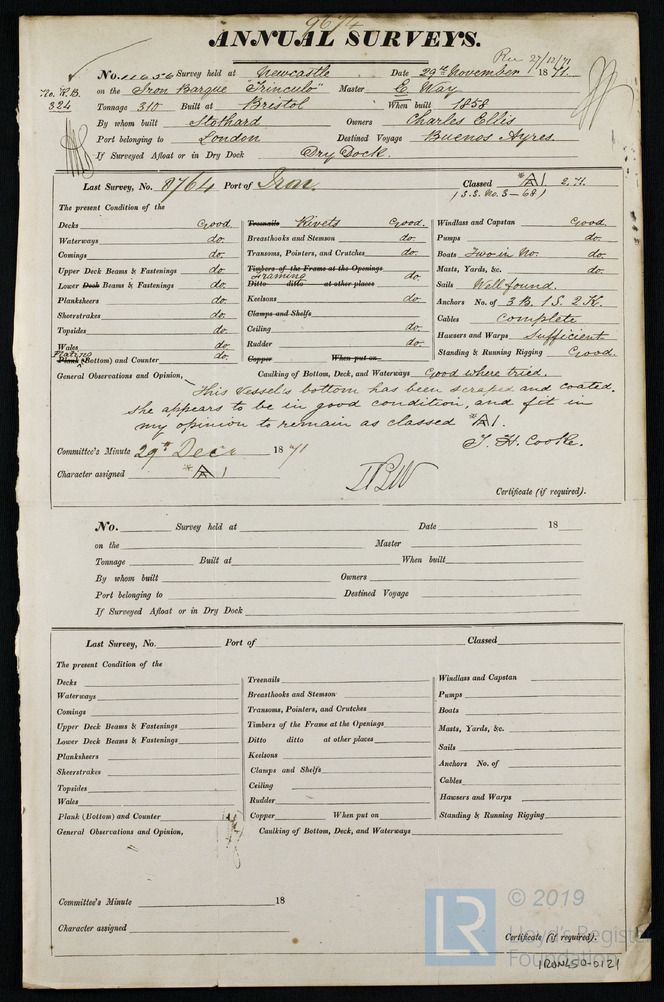 9674
ANNUAL SURVEYS.
Rec 27/12/71
No. 11656 Survey held at Newcastle Date 29th November 1871.
No. R.B. 324
on the Iron Barque "Trinculo" Master E. Way
Tonnage 310 Built at Bristol When built 1858
By whom built Stothard Owners Charles Ellis
Port belonging to London Destined Voyage Buenos Ayres.
If Surveyed Afloat or in Dry Dock Dry Dock.
Last Survey, No. 8764 Port of Iron. Classed *A1 2,71.
(S.S. No. 3-68)
The present Condition of the
Decks Good Treenails Rivets Good. Windlass and Capstan Good.
Waterways do. Breasthooks and Stemson do. Pumps do.
Comings do. Transoms, Pointers, and Crutches do. Boats Two in No. do.
Upper Deck Beams & Fastenings do. Timbers of the Frame at the Openings Masts, Yards, &c. do.
Framing do.
Lower Deck Beams & Fastenings do. Ditto ditto at other places Sails Well found.
Planksheers do. Keelsons do. Anchors No. of 3 B. 1 S. 2 K.
Sheerstrakes do. Clamps and Shelfs Cables complete
Topsides do. Ceiling do. Hawsers and Warps Sufficient
Wales do. Rudder do. Standing & Running Rigging Good.
Plating
Plank (Bottom) and Counter do. Copper When put on
General Observations and Opinion, Caulking of Bottom, Deck, and Waterways Good where tried.
This Vessel's bottom has been scraped and coated.
She appears to be in good condition, and fit in
my opinion to remain as classed *A1.
T. H. Cooke.
Committee's Minute 29th Decr 1871
Character assigned *A1
Certificate (if required).
No. Survey held at Date 18
on the Master
Tonnage Built at When built
By whom built Owners
Port belonging to Destined Voyage
If Surveyed Afloat or in Dry Dock
Last Survey, No. Port of Classed
The present Condition of the
Decks Treenails Windlass and Capstan
Waterways Breasthooks and Stemson Pumps
Comings Transoms, Pointers, and Crutches Boats
Upper Deck Beams & Fastenings Timbers of the Frame at the Openings Masts, Yards, &c.
Lower Deck Beams & Fastenings Ditto ditto at other places Sails
Planksheers Keelsons Anchors No. of
Sheerstrakes Clamps and Shelfs Cables
Topsides Ceiling Hawsers and Warps
Wales Rudder Standing & Running Rigging
Plank (Bottom) and Counter Copper When put on
General Observations and Opinion, Caulking of Bottom, Deck, and Waterways
Committee's Minute 18
Character assigned
Certificate (if required).
LR © 2019
Lloyd's Register
Foundation
IRON450-0121